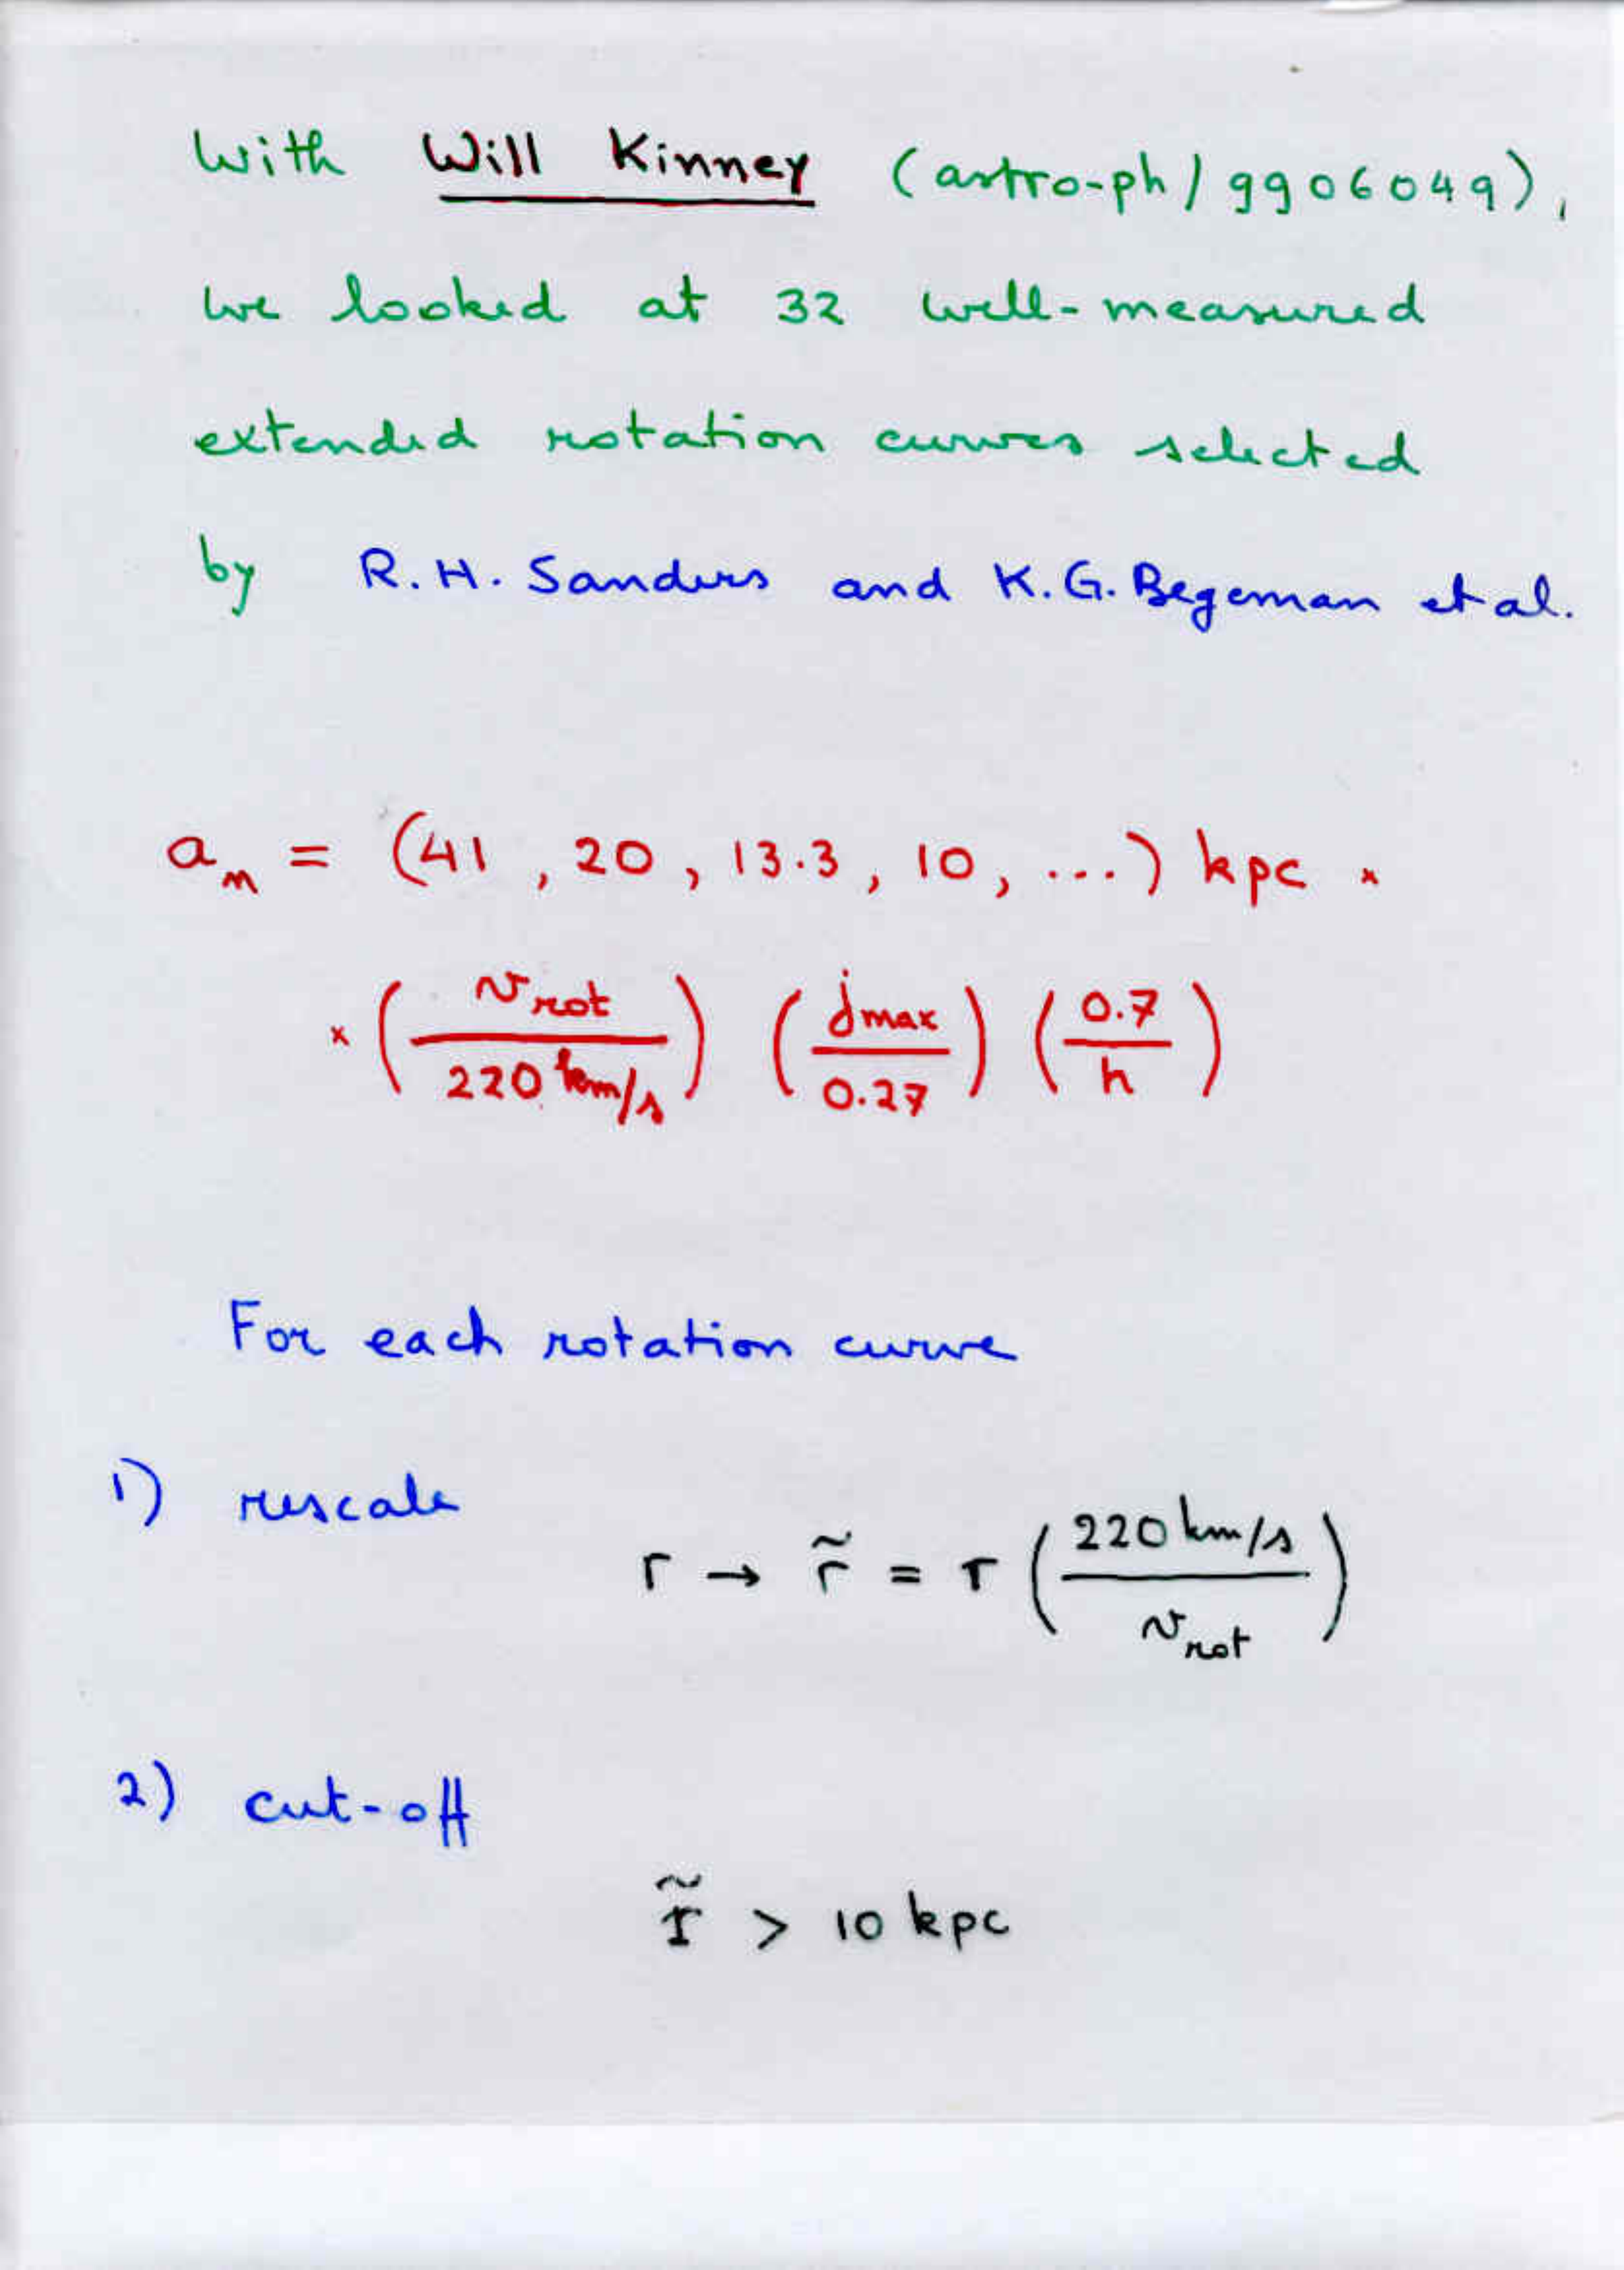 With Will Kinney (astro-ph/9906049),
we looked at 32 well-measured
extended rotation curves selected
by R.H. Sanders and K.G. Begeman et al.
a_n = (41, 20, 13.3, 10, ...) kpc ×
× (v_rot / 220 km/s) (j_max / 0.27) (0.7 / h)
For each rotation curve
1) rescale
r → r̃ = r (220 km/s / v_rot)
2) cut-off
r̃ > 10 kpc